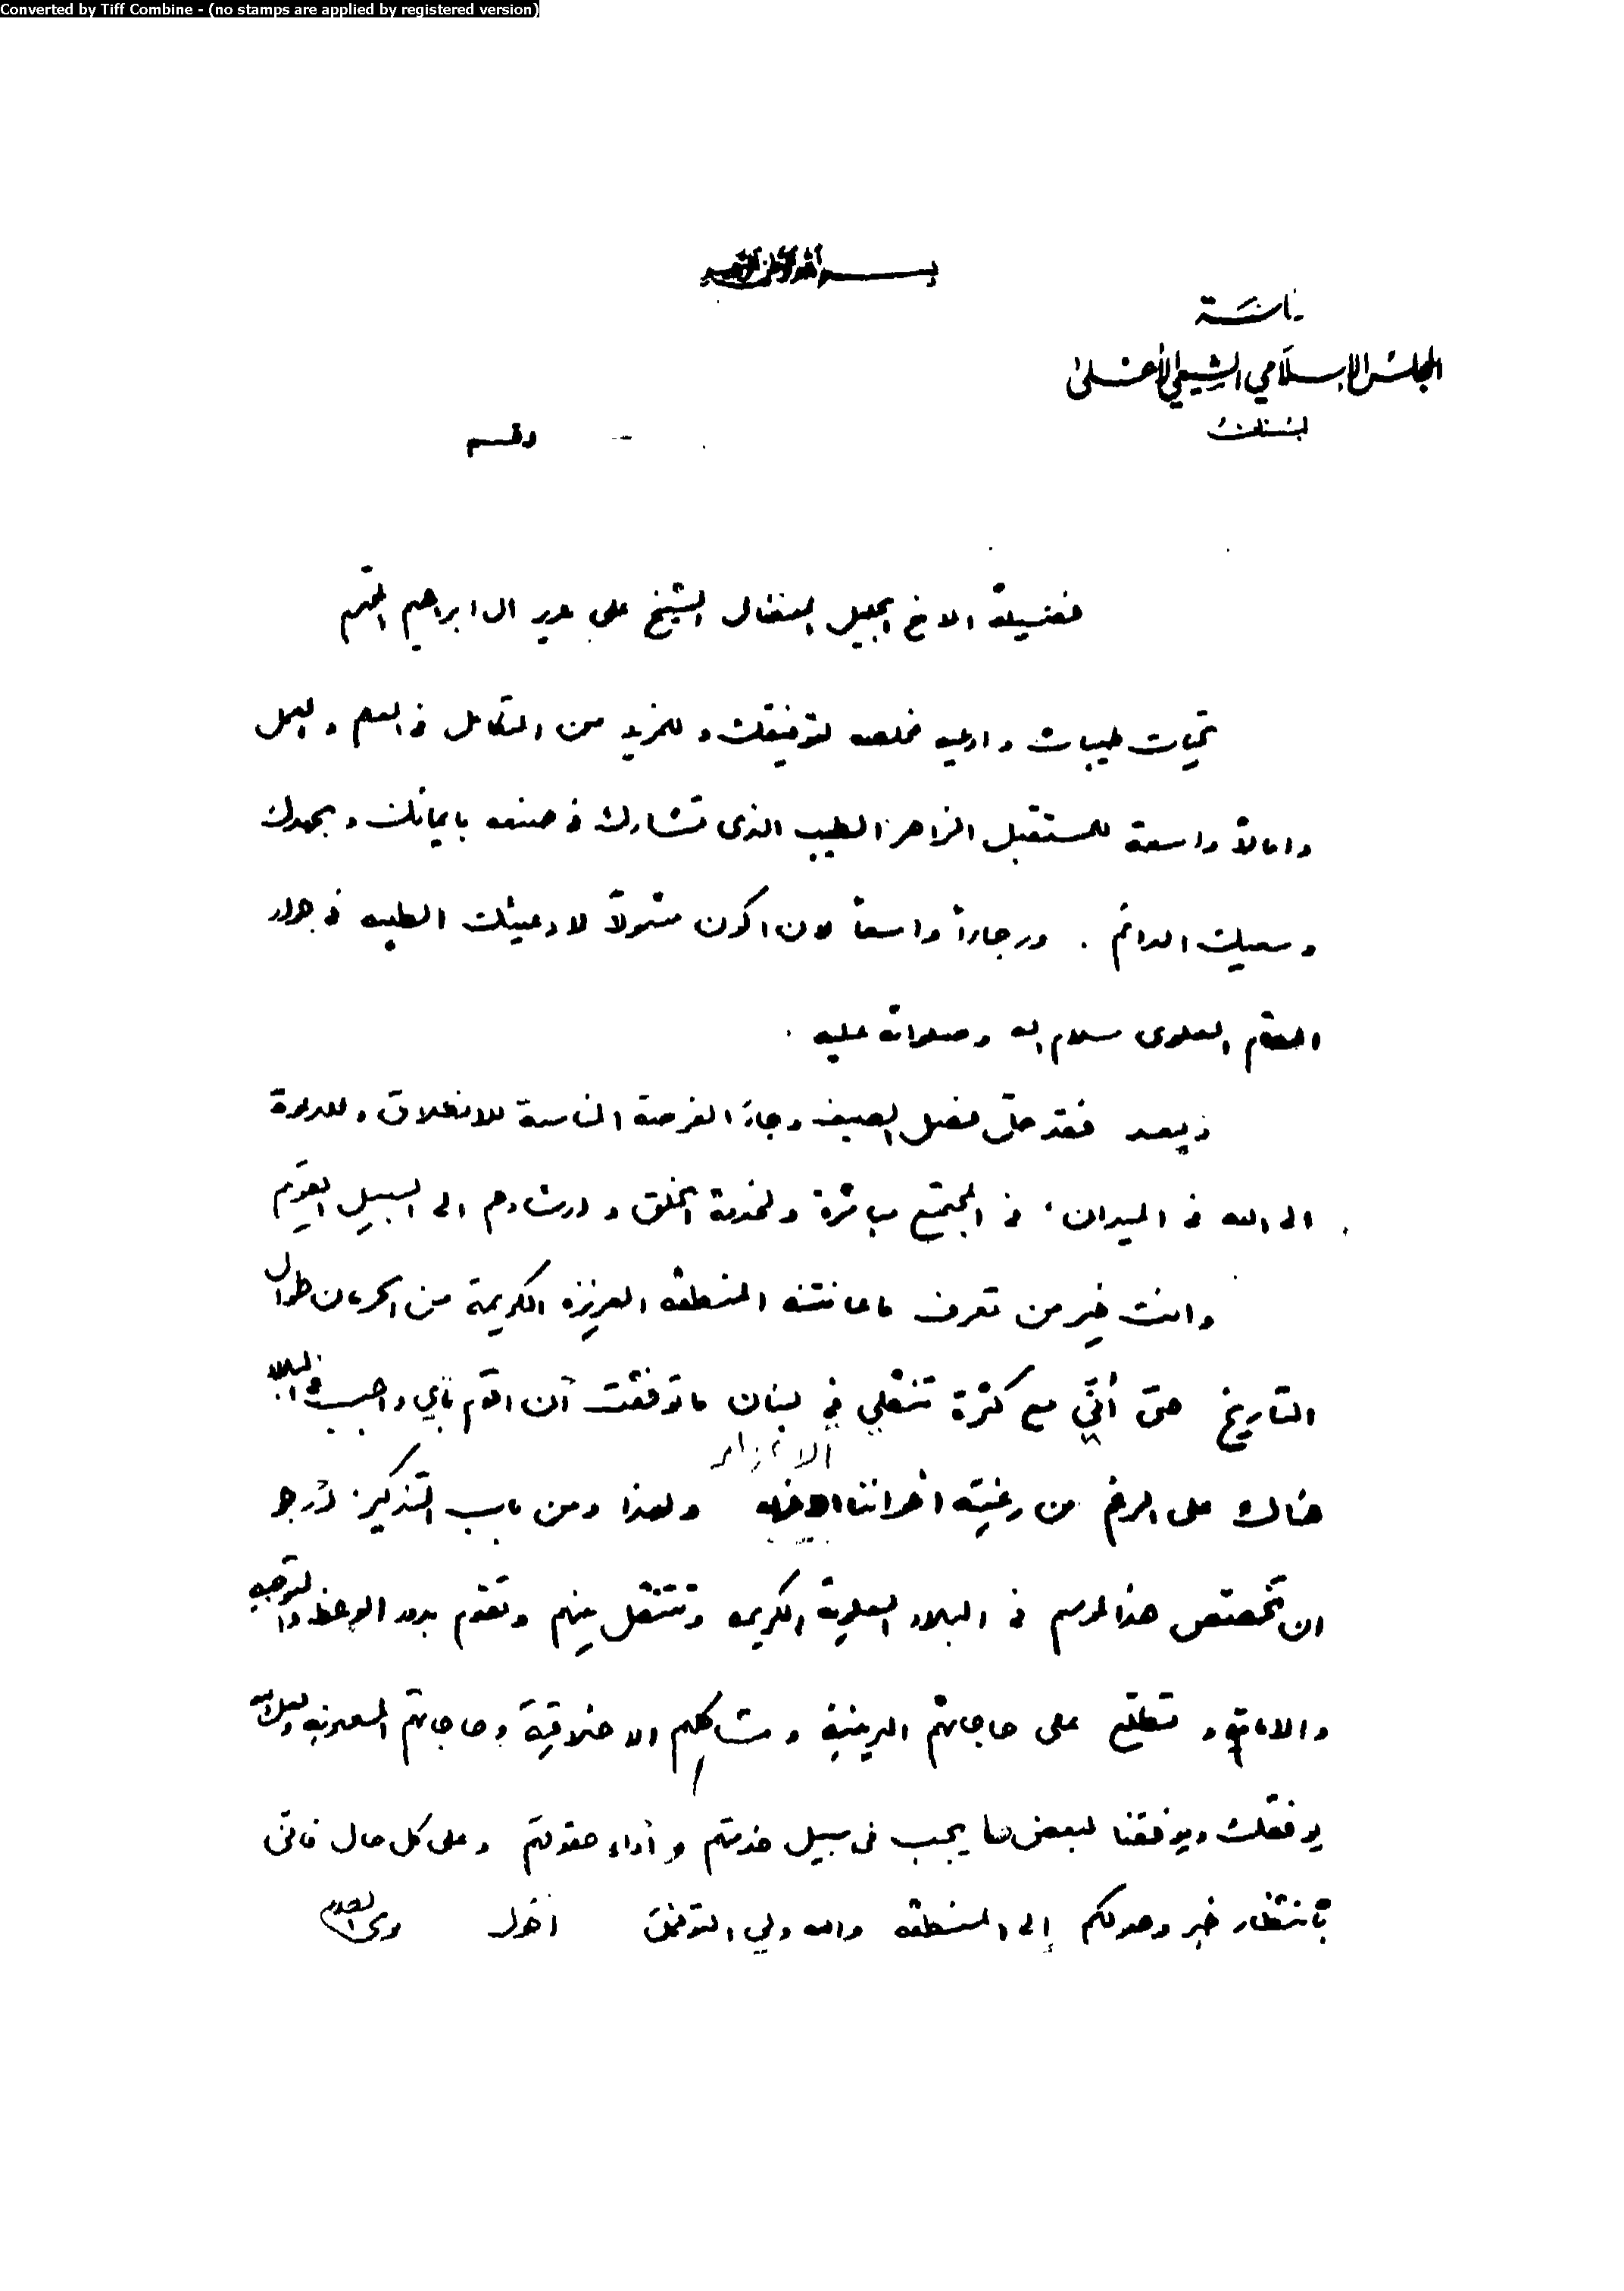 Converted by Tiff Combine - (no stamps are applied by registered version)
بسم الله الرحمن الرحيم
رئاسة
المجلس الإسلامي الشيعي الأعلى
لبنان
رقم
فضيلة الاخ الجليل المفضال الشيخ علي عزيز ال ابراهيم المحترم
تحيات طيبات وادعيه مخلصه لتوفيقك وللمزيد من التكامل في العلم والعمل
وامالاً واسعة للمستقبل الزاهر الطيب الذى تشارك في صنعه بايمانك وبجهدك
وسعيك الدائم . ورجاءً واسعاً لان اكون مشمولاً لادعيتك الطيبه في جوار
المقام العلوى سلام الله وصلواته عليه .
وبعد فقد حلّ فصل الصيف وجاءَ الفرصة المناسبة للانطلاق وللدعوة
الى الله في الميدان، في المجتمع مباشرة ولخدمة الخلق وارشادهم الى السبيل القويم
وانت خير من تعرف ما عانتته المنطقه العزيزه الكريمة من الحرمان طوال
التاريخ حتى أنّي مع كثرة تنقلي في لبنان ما توفقت أن اقوم بأي واجب في البلاد
هناك على الرغم من رغبته اخواننا الاعزاء ولهذا ومن باب التذكير نرجو
ان تخصص هذا الموسم في البلاد العلوية الكريمه وتتنقل بينهم وتقوم بدور الوعظ والتوجيه
والامامة وتطلع على حاجاتهم الدينية ومشاكلهم الاخلاقية وحاجاتهم المعنويه ولعل الله
يوفقك ويوفقنا لبعض ما يجب في سبيل خدمتهم وأداء حقوقهم وعلى كل حال فانى
بأنتظار خبر وصولكم إلى المنطقه والله ولي التوفيق اخوك موسى الصدر